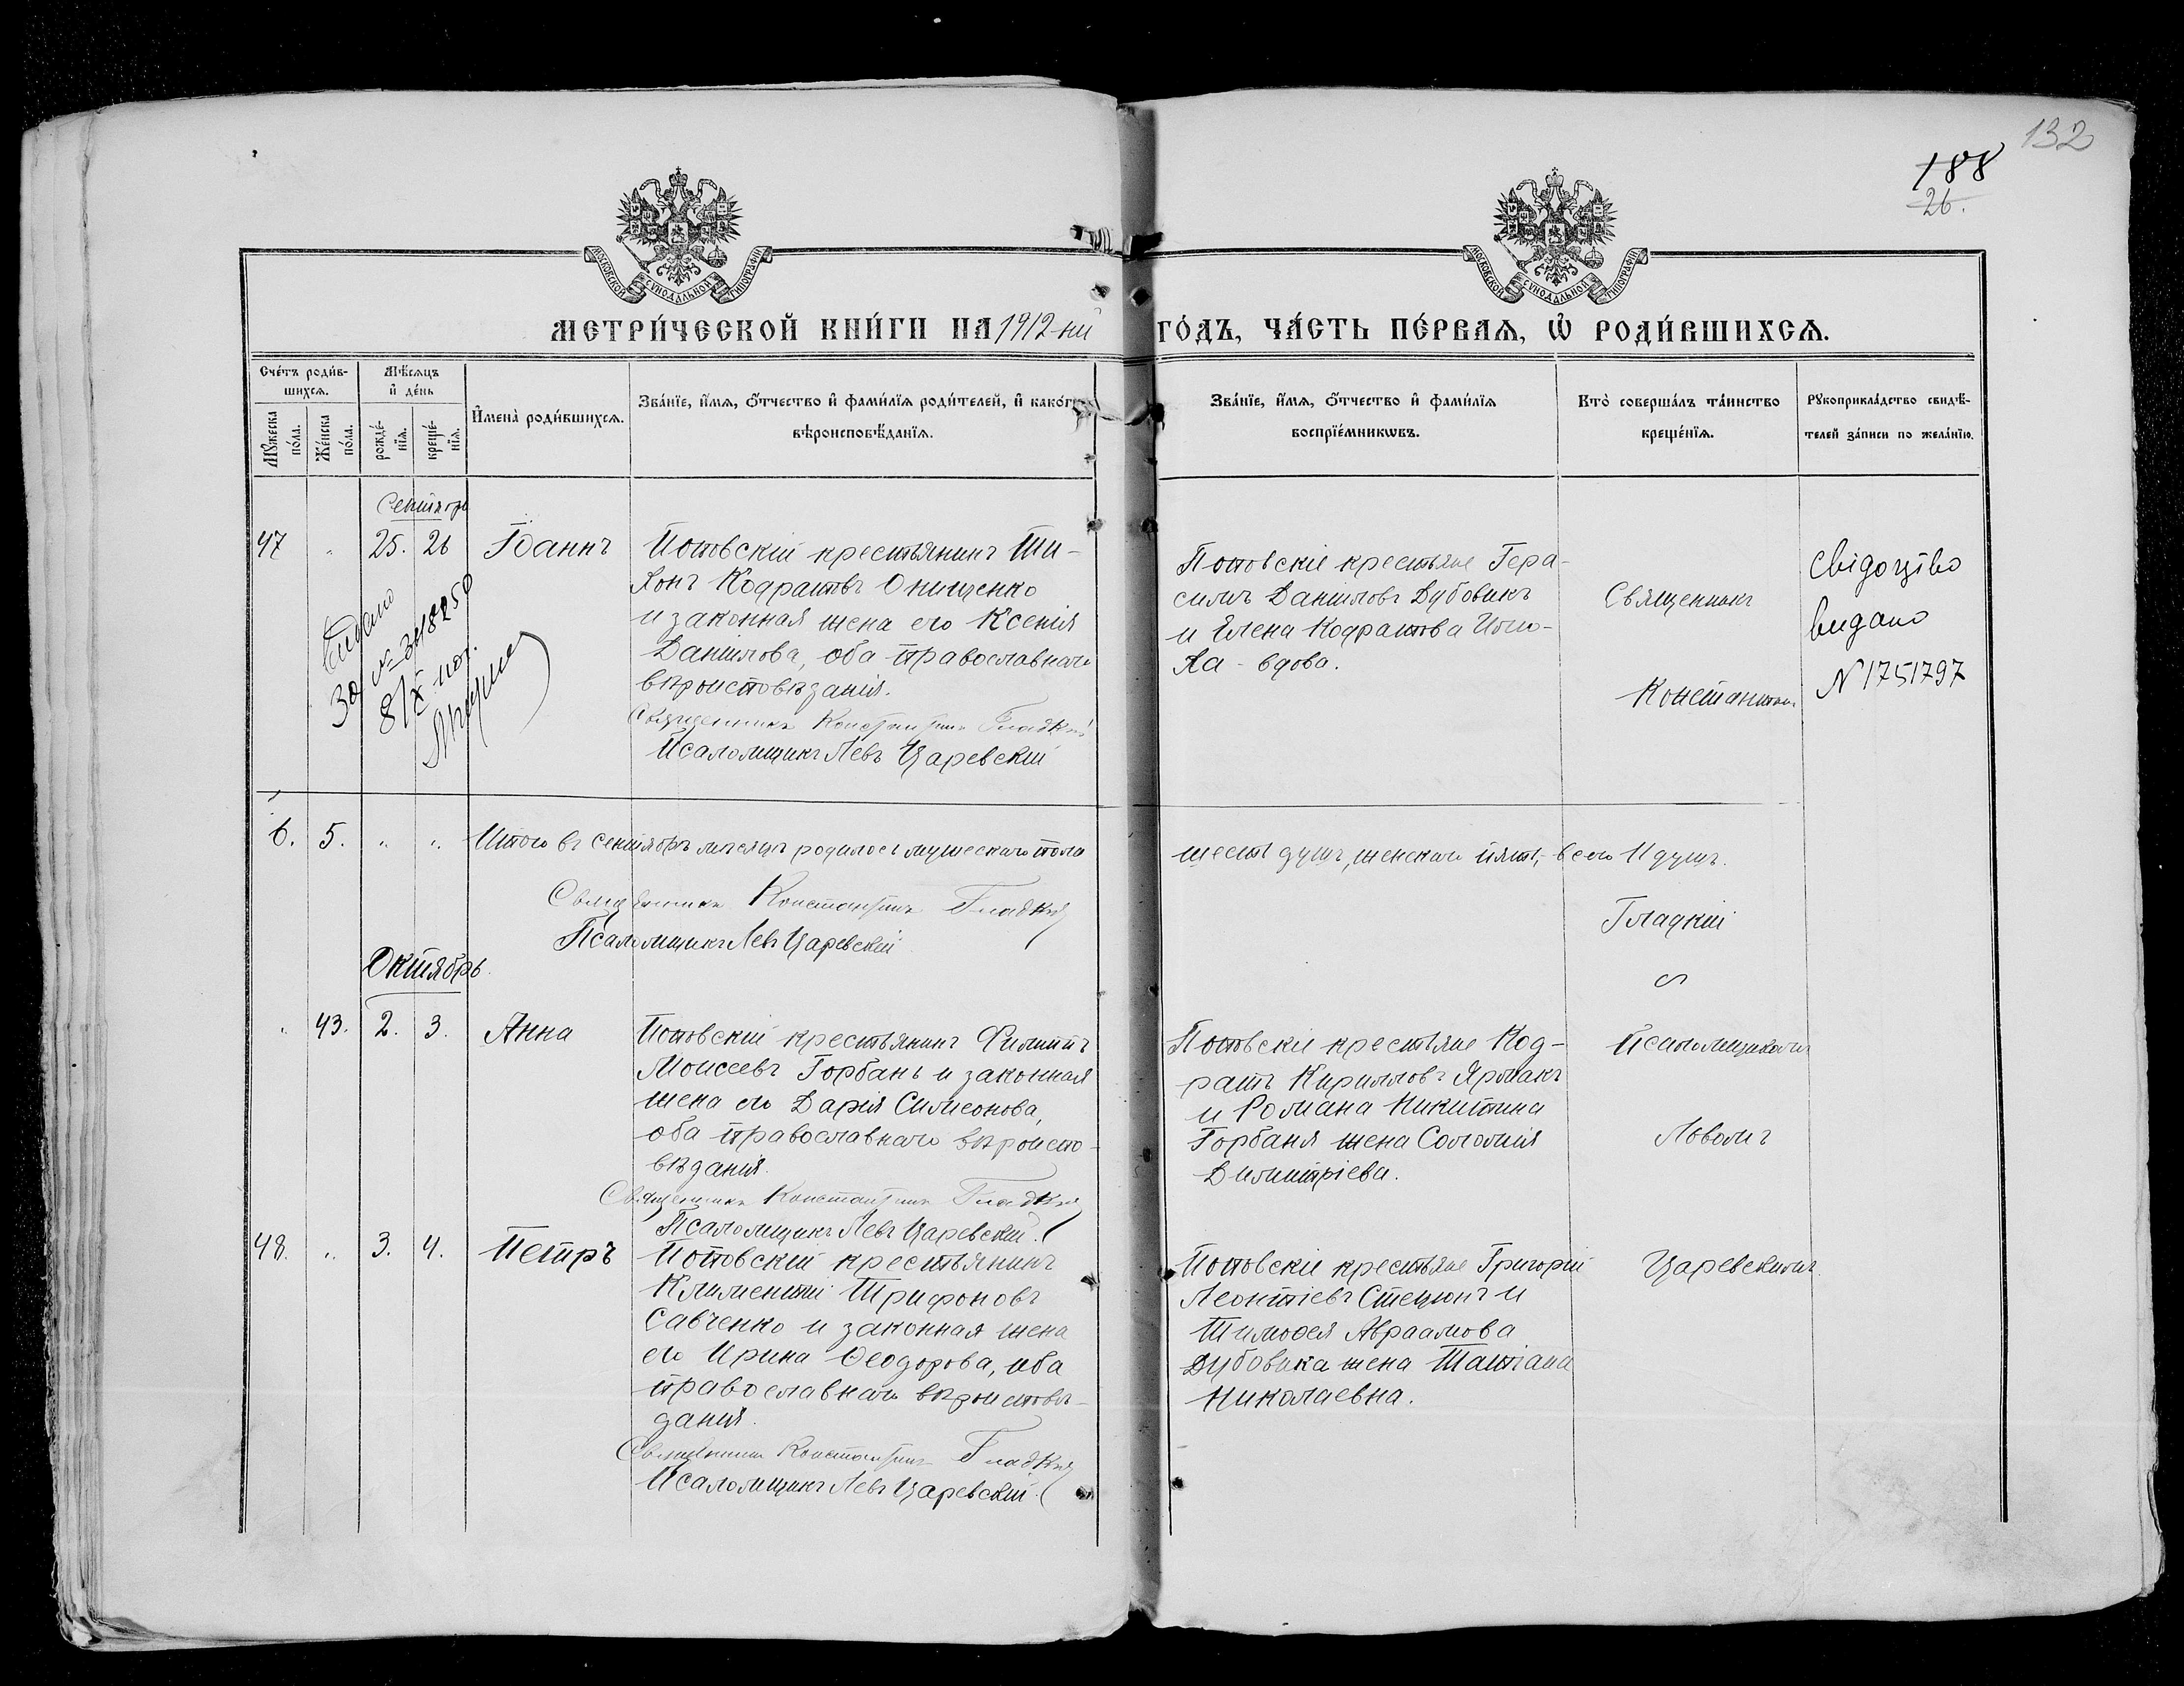 132
188
26.
МОСКОВСКОЙ СУНОДАЛЬНОЙ ТИПОГРАФІИ
МОСКОВСКОЙ СУНОДАЛЬНОЙ ТИПОГРАФІИ
МЕТРИ́ЧЕСКОЙ КНИ́ГИ НА 1912-ый ГО́ДЪ, ЧА́СТЬ ПЕ́РВАѦ, Ѡ҆ РОДИ́ВШИХСѦ.
Сче́тъ роди́в-
шихсѧ.
Мꙋ́жеска
по́ла.
Же́нска
по́ла.
Мѣ́сѧцъ
и҆ де́нь
рожде́-
нїѧ.
креще́-
нїѧ.
И҆мена̀ роди́вшихсѧ.
Зва́нїе, и҆́мѧ, ѻ҆́тчество и҆ фами́лїѧ роди́телей, и҆ како́гѡ
вѣроисповѣ́данїѧ.
Зва́нїе, и҆́мѧ, ѻ҆́тчество и҆ фами́лїѧ
воспрїе́мникѡвъ.
Кто̀ соверша́лъ та́инство
креще́нїѧ.
Рꙋкоприкла́дство свидѣ́-
телей за́писи по жела́нїю.
Сентябрь
47 " 25. 26 Іоаннъ
Поповскій крестьянинъ Ти-
хонъ Кодратовъ Онищенко
и законная жена его Ксенія
Данилова, оба православнаго
вѣроисповѣданія.
Священникъ Константинъ Гладкій
Псаломщикъ Левъ Царевскій
Поповскіе крестьяне Гера-
симъ Даниловъ Дубовикъ
и Елена Кодратова
вдова.
Священникъ
Константинъ
Свідоцтво
видано
N 1751797
Видано
за №
8/X
6. 5. " " Итого въ сентябрѣ мѣсяцѣ родилось мужескаго пола
шесть душъ, женскаго пять, всего 11 душъ.
Священникъ Константинъ Гладкій
Псаломщикъ Левъ Царевскій
Гладкій
с
Октябрь
" 43. 2. 3. Анна
Поповскій крестьянинъ Филиппъ
Моисеевъ Горбань и законная
жена его Дарія Симеонова,
оба православнаго вѣроиспо-
вѣданія.
Священникъ Константинъ Гладкій
Псаломщикъ Левъ Царевскій.
Поповскіе крестьяне Код-
ратъ Кирилловъ Ярмакъ
и Романа Никитина
Горбаня жена Соломія
Димитріева.
Псаломщикомъ
Львомъ
48. " 3. 4. Петръ
Поповскій крестьянинъ
Климентій Трифоновъ
Савченко и законная жена
его Ирина Ѳеодорова, оба
православнаго вѣроисповѣ-
данія.
Священникъ Константинъ Гладкій
Псаломщикъ Левъ Царевскій.
Поповскіе крестьяне Григорій
Леонтіевъ Стецюнъ и
Тимоѳея Авраамова
Дубовика жена Татіана
Николаевна.
Царевскимъ